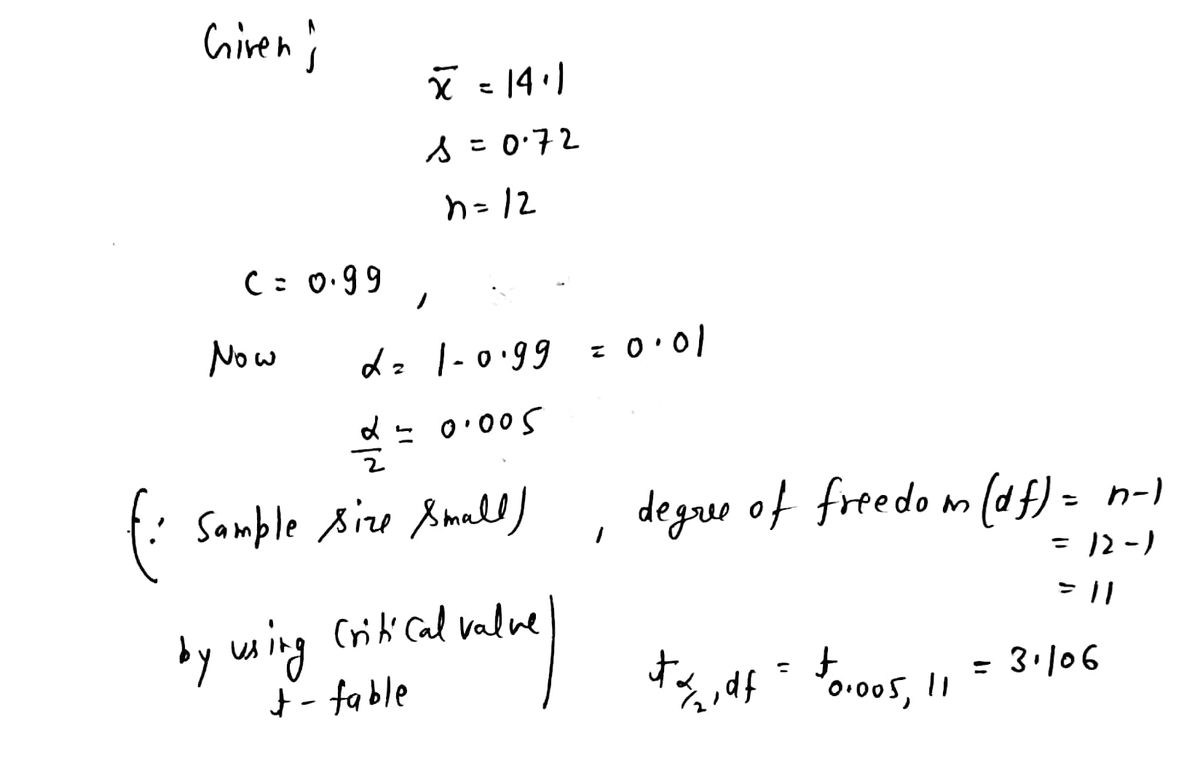 Given;
x̄ = 14.1
s = 0.72
n = 12
C = 0.99 ,
Now α = 1-0.99 = 0.01
α/2 = 0.005
(∵ Sample size small) , degree of freedom (df) = n-1
= 12-1
= 11
by using Critical value
t-table
t_{α/2, df} = t_{0.005, 11} = 3.106